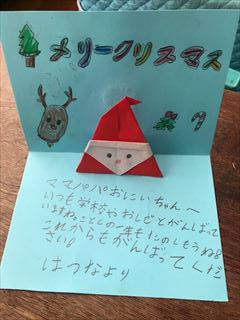 メリークリスマス
ママパパおにいちゃんへ
いつも学校やおしごとがんばって
いますねことしの一年もたのしもうね!
これからもがんばってくだ
さい!
はつなより